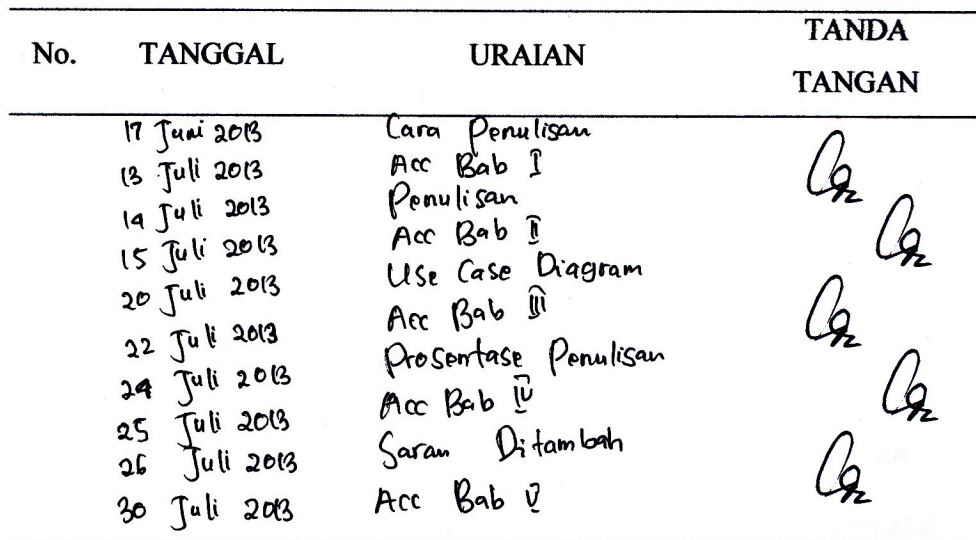 No. TANGGAL URAIAN TANDA TANGAN
17 Juni 2013 Cara Penulisan
13 Juli 2013 Acc Bab I
14 Juli 2013 Penulisan
15 Juli 2013 Acc Bab II
20 Juli 2013 Use Case Diagram
22 Juli 2013 Acc Bab III
24 Juli 2013 Prosentase Penulisan
25 Juli 2013 Acc Bab IV
26 Juli 2013 Saran Ditambah
30 Juli 2013 Acc Bab V